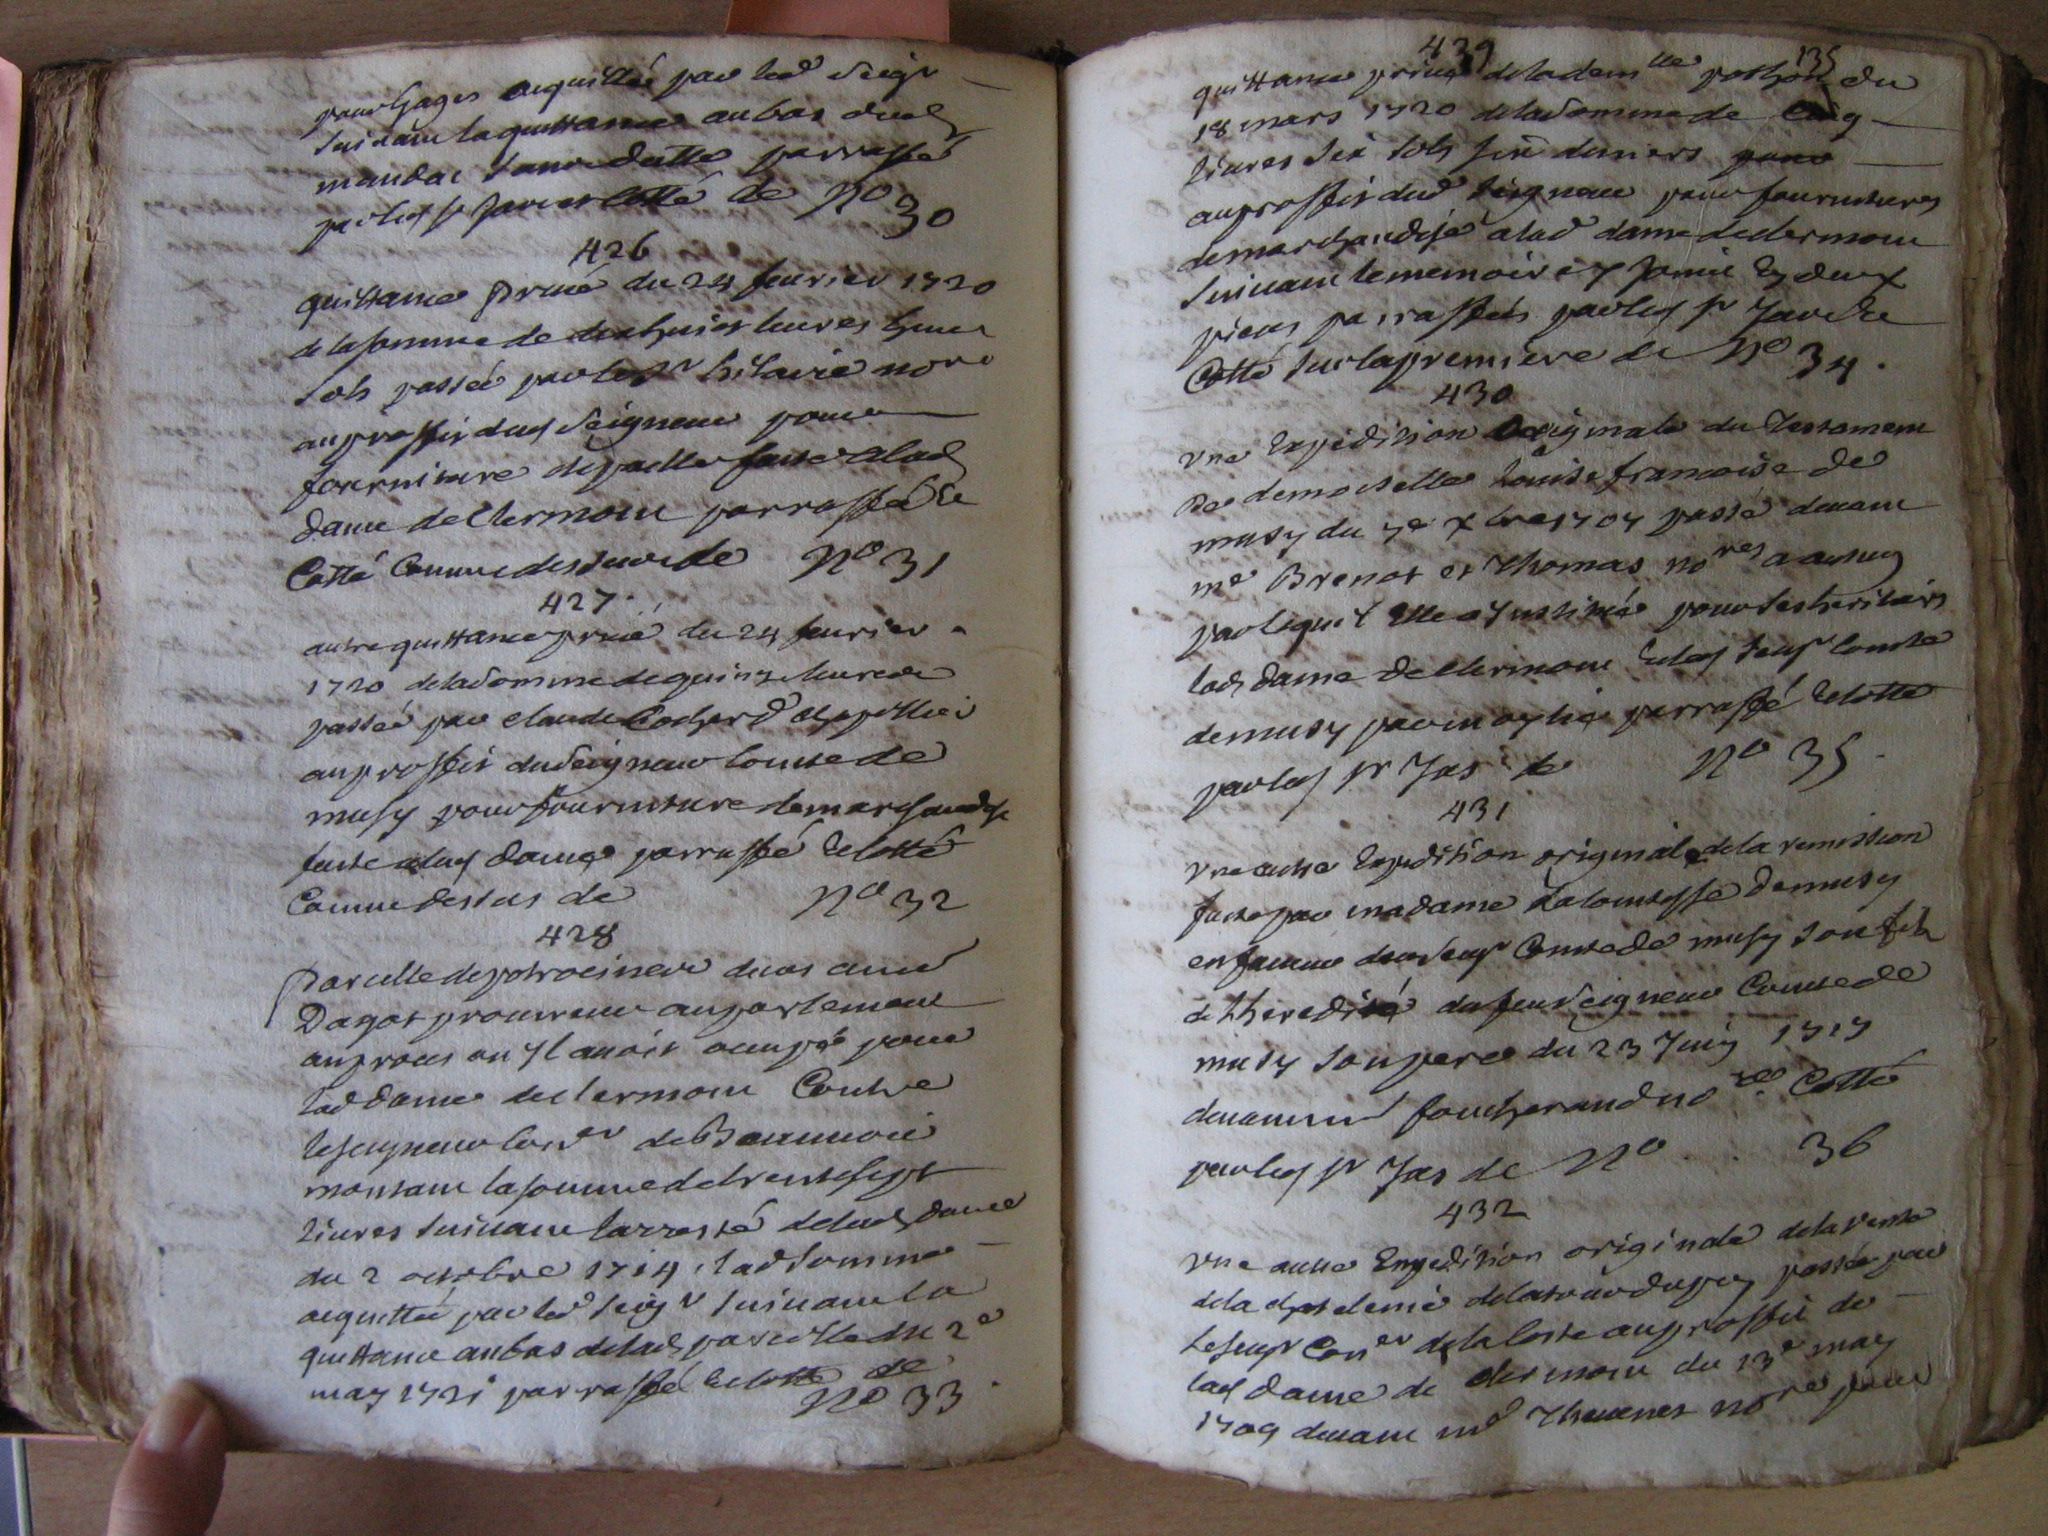 pour gages acquittée par led seigr
suivant la quittance au bas dud
mandat sans datte parraffée
par led sr Jas et cotté de No 30
426
quittance privé du 24 feurier 1720
de la somme de dixhuict liures
sols passée par le sr hilaire
au proffit dud seigneur pour
fourniture de faitte a lad
dame de Clermont parraffée et
Cotté Comme dessus de No 31
427
autre quittance privé du 24 feurier
1720 de la somme de quinze liures
passée par claude Cochard
au proffit du seigneur Comte de
musy pour fourniture de marchandise
faite a lad dame parraffé et cotté
Comme dessus de No 32
428
Parcelle de patrocinere de
Dagot procureur au parlement
au proces ou Jl auoit occupé pour
lad dame de clermont Contre
le seigneur Conser de Beauuoir
montant la somme de trente sept
liures suiuant larresté de lad dame
du 2 octobre 1714, lad somme
acquittée par led seigr suiuant la
quittance au bas de lad parcelle du 2e
may 1721 parraffé et cotté de
No 33.
135
429
quittance privé de la demlle du
18 mars 1720 de la somme de Cinq
liures six sols six deniers
au proffit dud seigneur pour fournitures
de marchandise a lad dame de clermont
suiuant le memoire y Joint En deux
pieces parraffés par led sr Jas et
Cotté sur la premiere de No 34.
430
vne Expedition Originale du Testament
De demoiselle Louise francoise de
musy du 7e xbre 1707 passé deuant
me Brenot et Thomas nores a
par lequel Elle a Justitué pour ses heritiers
lad dame de clermont et led seigr Comte
de musy par moytié parraffé et cotte
par led sr Jas de No 35.
431
vne autre Expedition originale de la remission
faite par madame La Comtesse de musy
en faueur dud seigr Comte de musy son fils
de Lheredité du feu seigneur Comte de
musy son pere du 23 Juin 1717
deuant me foucherand nore Cotté
par led sr Jas de No 36
432
vne autre Expedition originale de la vente
de la chastelenie de la tour du pin passée par
le seigr Conser de la Coste au proffit de
lad dame de clermont du 13e may
1709 deuant me Theuenet nore pour